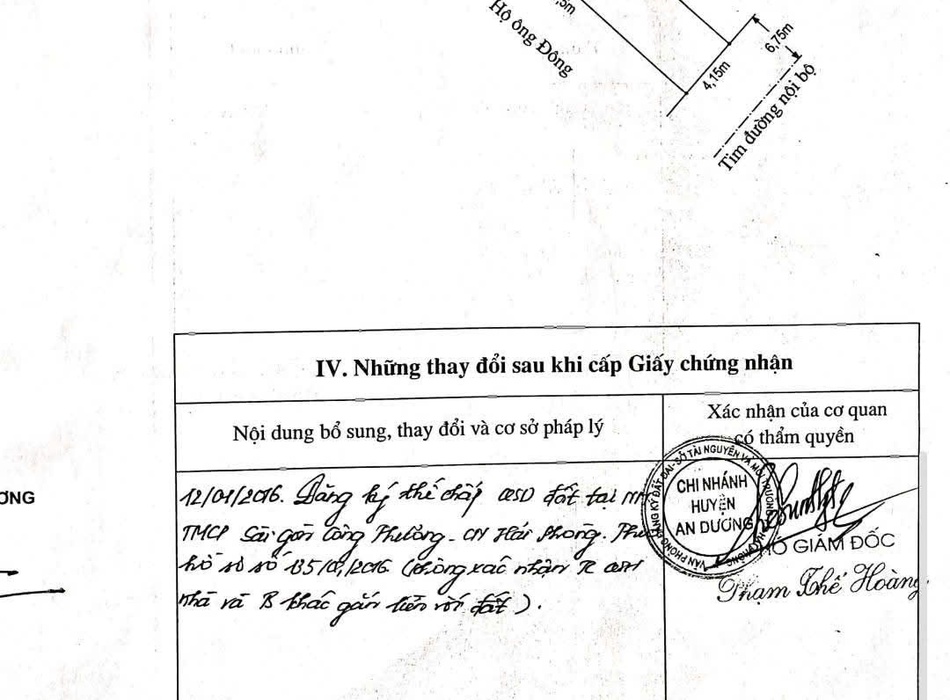 Hộ ông Đông
5m
4,15m
6,75m
Tim đường nội bộ
ƠNG
IV. Những thay đổi sau khi cấp Giấy chứng nhận
Nội dung bổ sung, thay đổi và cơ sở pháp lý
Xác nhận của cơ quan
có thẩm quyền
12/01/2016. Đăng ký thế chấp QSD đất tại
TMCP Sài gòn Công Thương - CN Hải Phòng. Theo
hồ sơ số 135/ /2016 (không xác nhận
nhà và khác gắn liền với đất).
VĂN PHÒNG ĐĂNG KÝ ĐẤT ĐAI - SỞ TÀI NGUYÊN VÀ MÔI TRƯỜNG HẢI PHÒNG
CHI NHÁNH
HUYỆN
AN DƯƠNG
PHÓ GIÁM ĐỐC
Phạm Thế Hoàng